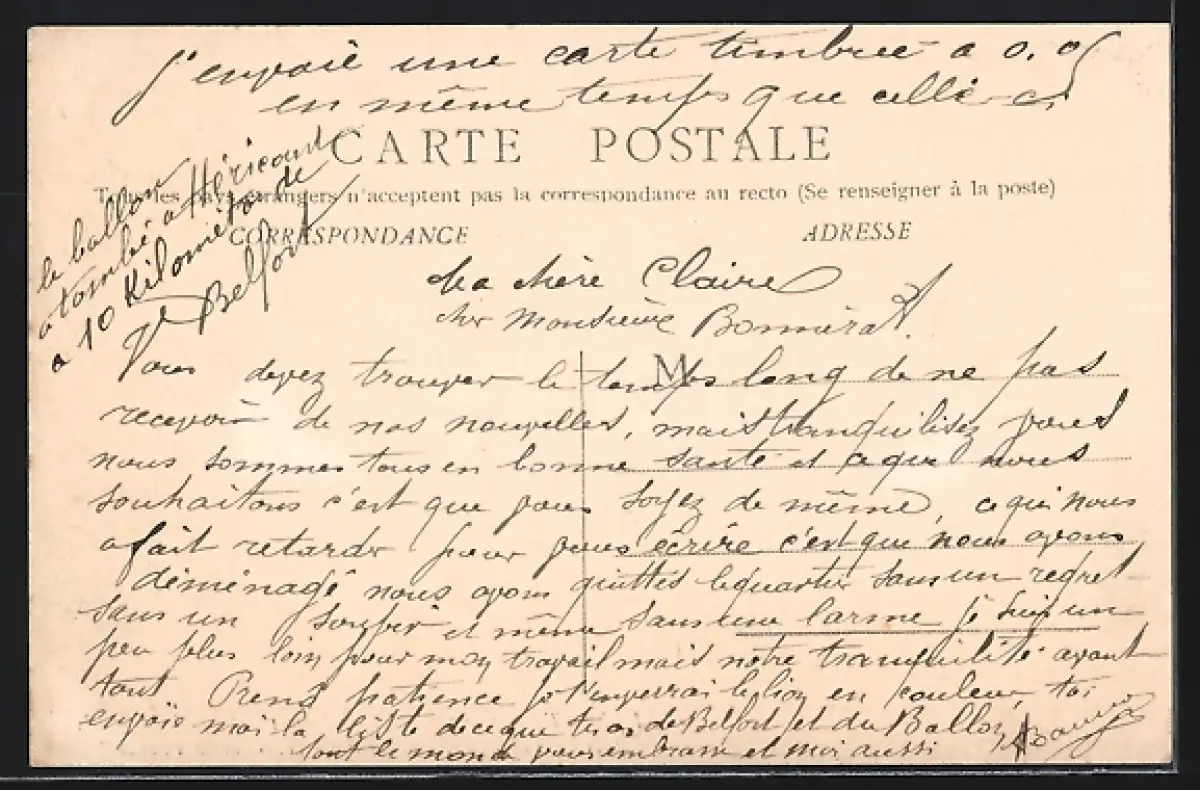 J'envoie une carte timbrée a 0.05
en même temps que celle-ci
CARTE POSTALE
Tous les pays étrangers n'acceptent pas la correspondance au recto (Se renseigner à la poste)
CORRESPONDANCE
ADRESSE
le ballon
a tombé a Héricourt
a 10 Kilomètres de
Belfort
Ma chère Claire
cher Monsieur
M
Vous devez trouver le temps long de ne pas
recevoir de nos nouvelles, mais tranquilisez vous
nous sommes tous en bonne santé et ce que nous
souhaitons c'est que vous soyez de même, ce qui nous
a fait retarder pour vous écrire c'est que nous avons
déménagé nous avons quittés le quartier sans un regret
sans un soupir et même sans une larme je suis un
peu plus loin pour mon travail mais notre tranquilité avant
tout. Prend patience je t'enverrai le lion en couleur, toi
envoie moi la liste de ce que tu as de Belfort et du Ballon
tout le monde vous embrasse et moi aussi